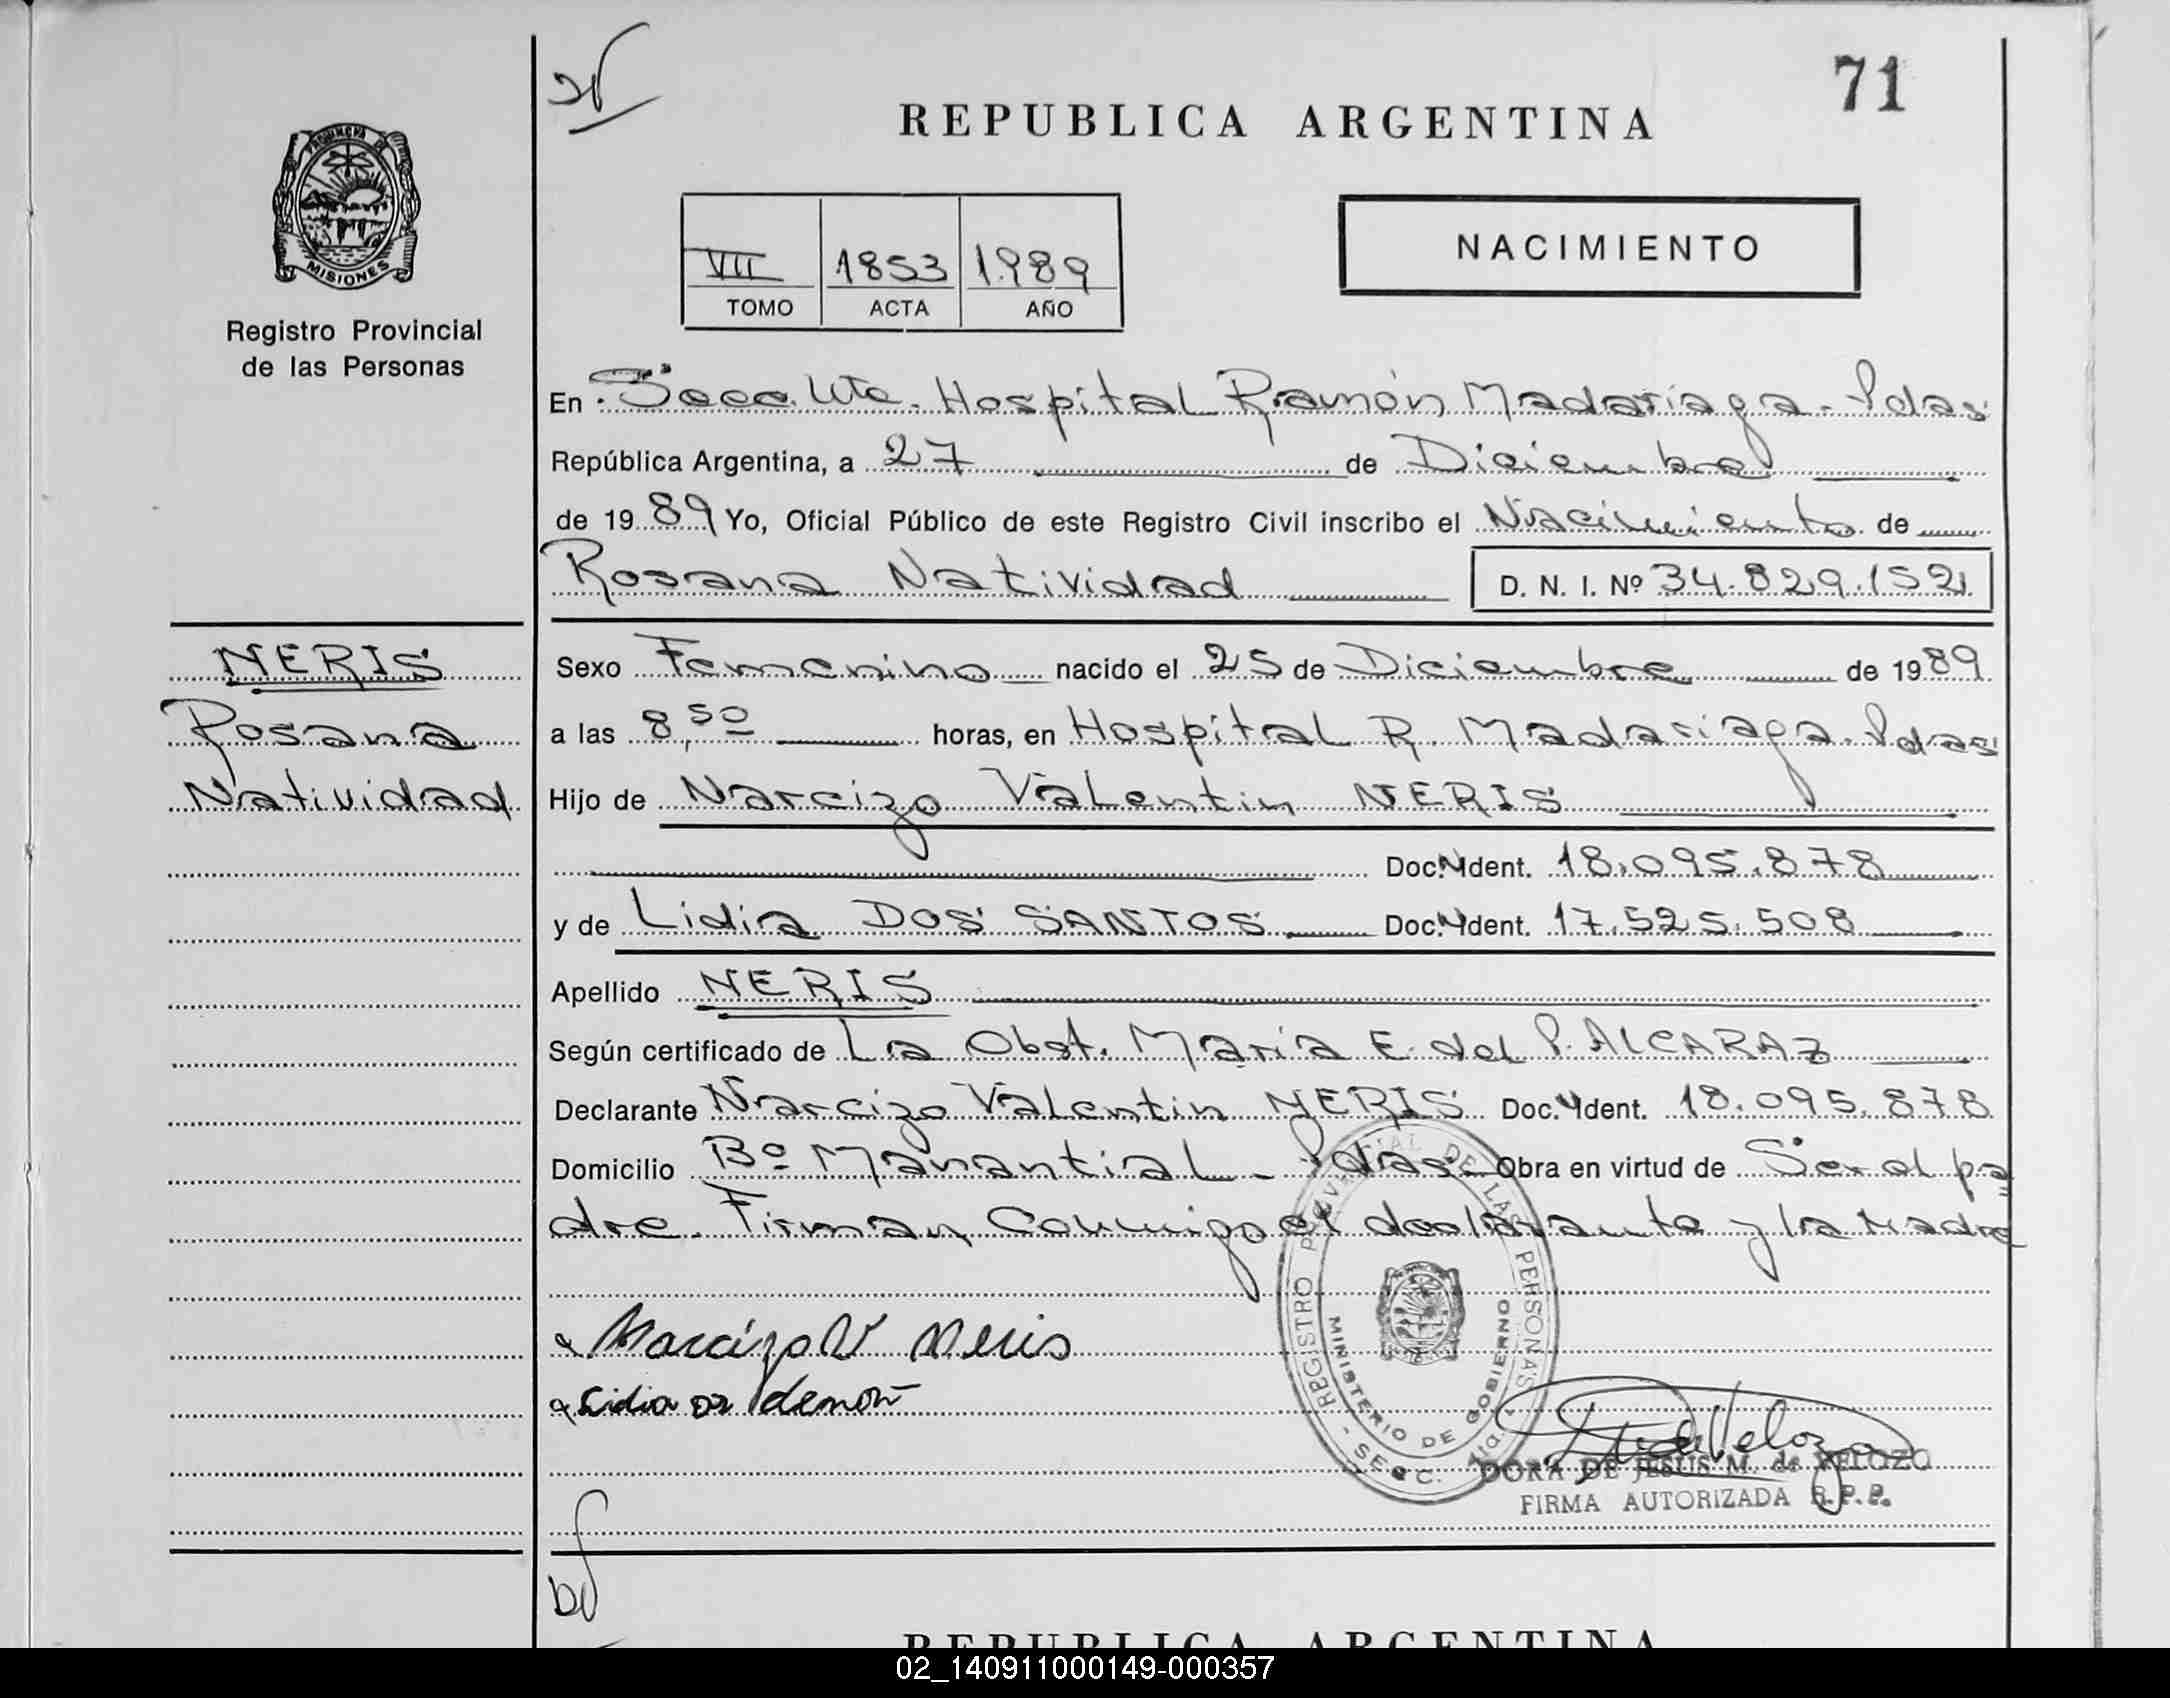 71
REPUBLICA ARGENTINA
PROVINCIA DE
MISIONES
Registro Provincial
de las Personas
VII 1853 1989
TOMO ACTA AÑO
NACIMIENTO
En Secc. Hospital Ramón Madariaga - Pdas
República Argentina, a 27 de Diciembre
de 1989 Yo, Oficial Público de este Registro Civil inscribo el Nacimiento de
Rosana Natividad D. N. I. Nº 34.829.152
NERIS
Rosana
Natividad
Sexo Femenino nacido el 25 de Diciembre de 1989
a las 8,50 horas, en Hospital R. Madariaga - Pdas
Hijo de Narcizo Valentin NERIS
Doc. Ident. 18.095.878
y de Lidia DOS SANTOS Doc. Ident. 17.525.508
Apellido NERIS
Según certificado de La Obst. Maria E. del P. ALCARAZ
Declarante Narcizo Valentin NERIS Doc. Ident. 18.095.878
Domicilio Bº Manantial - Pdas - Obra en virtud de Ser el pa
dre. Firman Conmigo el declarante y la Madre
Narcizo V Neris
Lidia
REGISTRO PROVINCIAL DE LAS PERSONAS
MINISTERIO DE GOBIERNO
DORA DE JESUS M. de VELOZO
FIRMA AUTORIZADA R.P.P.
REPUBLICA ARGENTINA
02_140911000149-000357